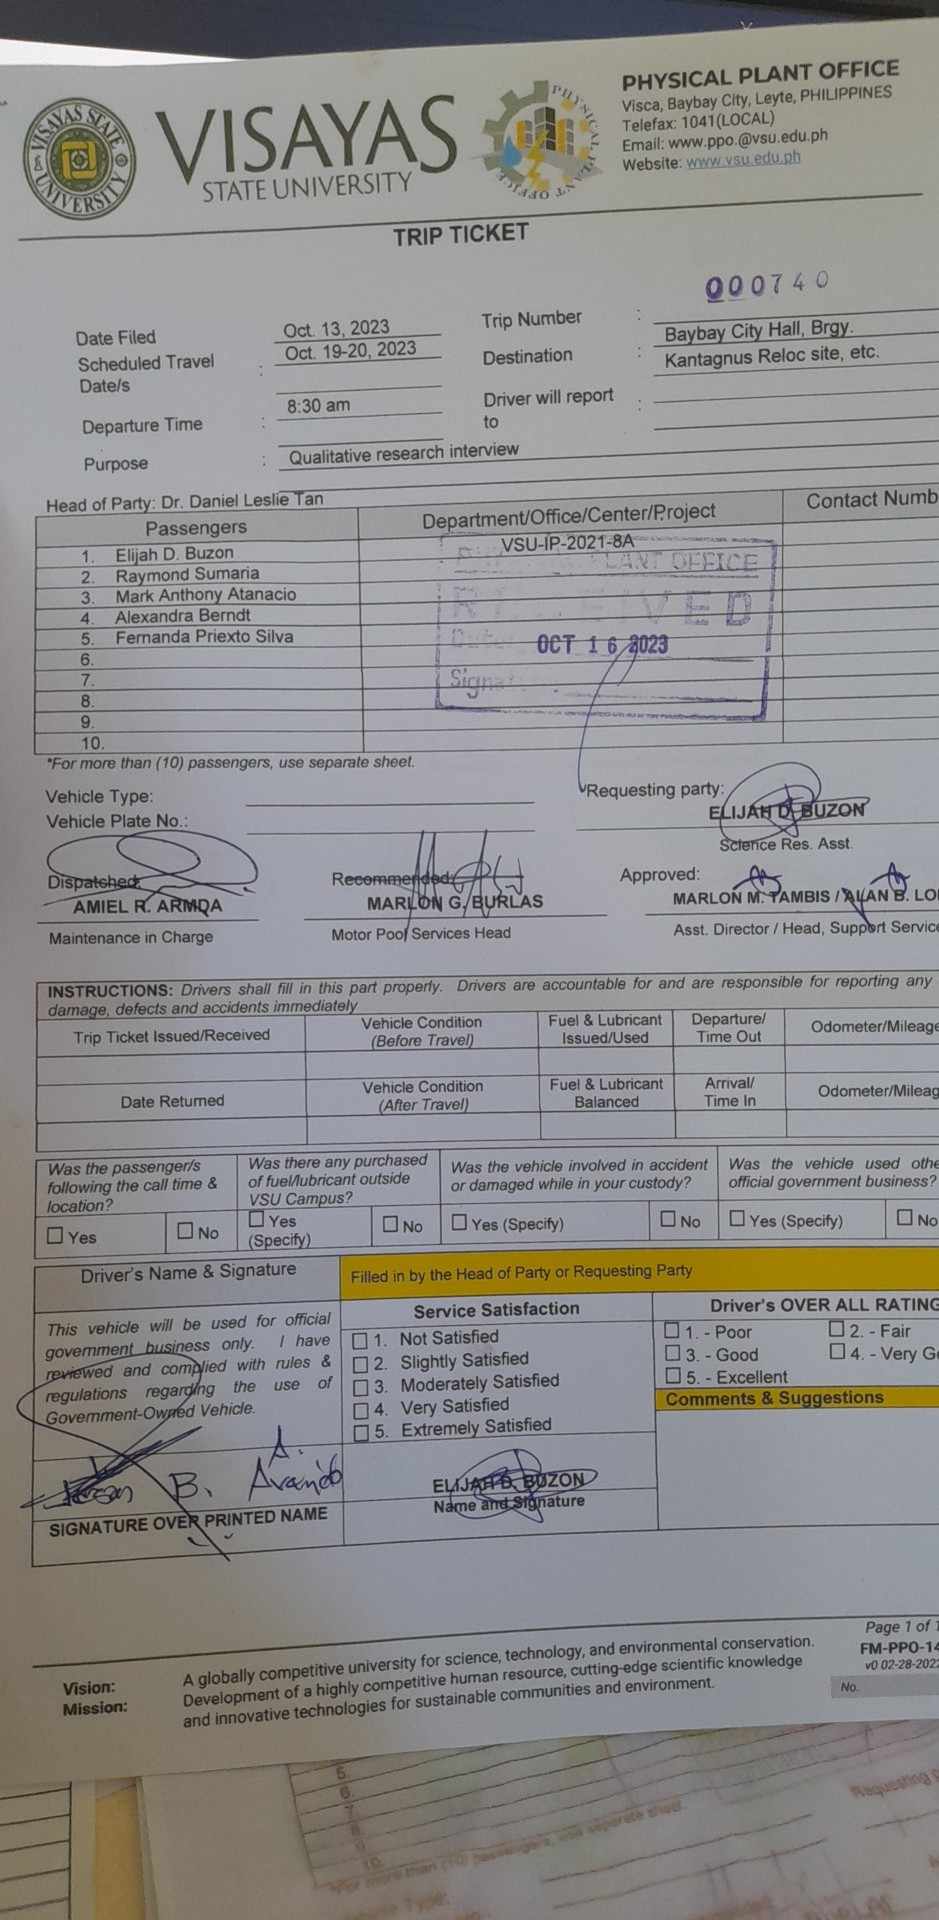 VISAYAS STATE UNIVERSITY
VISAYAS
STATE UNIVERSITY
PHYSICAL PLANT OFFICE
PHYSICAL PLANT OFFICE
Visca, Baybay City, Leyte, PHILIPPINES
Telefax: 1041(LOCAL)
Email: www.ppo.@vsu.edu.ph
Website: www.vsu.edu.ph
TRIP TICKET
000740
Date Filed Oct. 13, 2023 Trip Number :
Scheduled Travel Date/s : Oct. 19-20, 2023 Destination : Baybay City Hall, Brgy. Kantagnus Reloc site, etc.
Departure Time : 8:30 am Driver will report to :
Purpose : Qualitative research interview
Head of Party: Dr. Daniel Leslie Tan
Passengers Department/Office/Center/Project Contact Numb
1. Elijah D. Buzon VSU-IP-2021-8A
2. Raymond Sumaria
3. Mark Anthony Atanacio
4. Alexandra Berndt
5. Fernanda Priexto Silva
6.
7.
8.
9.
10.
PLANT OFFICE
OCT 16 2023
*For more than (10) passengers, use separate sheet.
Vehicle Type:
Vehicle Plate No.:
Requesting party:
ELIJAH D. BUZON
Science Res. Asst.
Dispatched: Recommended: Approved:
AMIEL R. ARMDA MARLON G. BURLAS MARLON M. TAMBIS / ALAN B. LO
Maintenance in Charge Motor Pool Services Head Asst. Director / Head, Support Service
INSTRUCTIONS: Drivers shall fill in this part properly. Drivers are accountable for and are responsible for reporting any
damage, defects and accidents immediately
Trip Ticket Issued/Received Vehicle Condition (Before Travel) Fuel & Lubricant Issued/Used Departure/ Time Out Odometer/Mileage
Date Returned Vehicle Condition (After Travel) Fuel & Lubricant Balanced Arrival/ Time In Odometer/Mileag
Was the passenger/s following the call time & location?
Yes No
Was there any purchased of fuel/lubricant outside VSU Campus?
Yes (Specify) No
Was the vehicle involved in accident or damaged while in your custody?
Yes (Specify) No
Was the vehicle used othe official government business?
Yes (Specify) No
Driver's Name & Signature
Filled in by the Head of Party or Requesting Party
This vehicle will be used for official
government business only. I have
reviewed and complied with rules &
regulations regarding the use of
Government-Owned Vehicle.
Service Satisfaction
1. Not Satisfied
2. Slightly Satisfied
3. Moderately Satisfied
4. Very Satisfied
5. Extremely Satisfied
Driver's OVER ALL RATING
1. - Poor 2. - Fair
3. - Good 4. - Very Go
5. - Excellent
Comments & Suggestions
B.
SIGNATURE OVER PRINTED NAME
ELIJAH D. BUZON
Name and Signature
Page 1 of 1
FM-PPO-14
v0 02-28-2022
No.
Vision: A globally competitive university for science, technology, and environmental conservation.
Mission: Development of a highly competitive human resource, cutting-edge scientific knowledge
and innovative technologies for sustainable communities and environment.
5.
6.
7.
8.
9.
10.